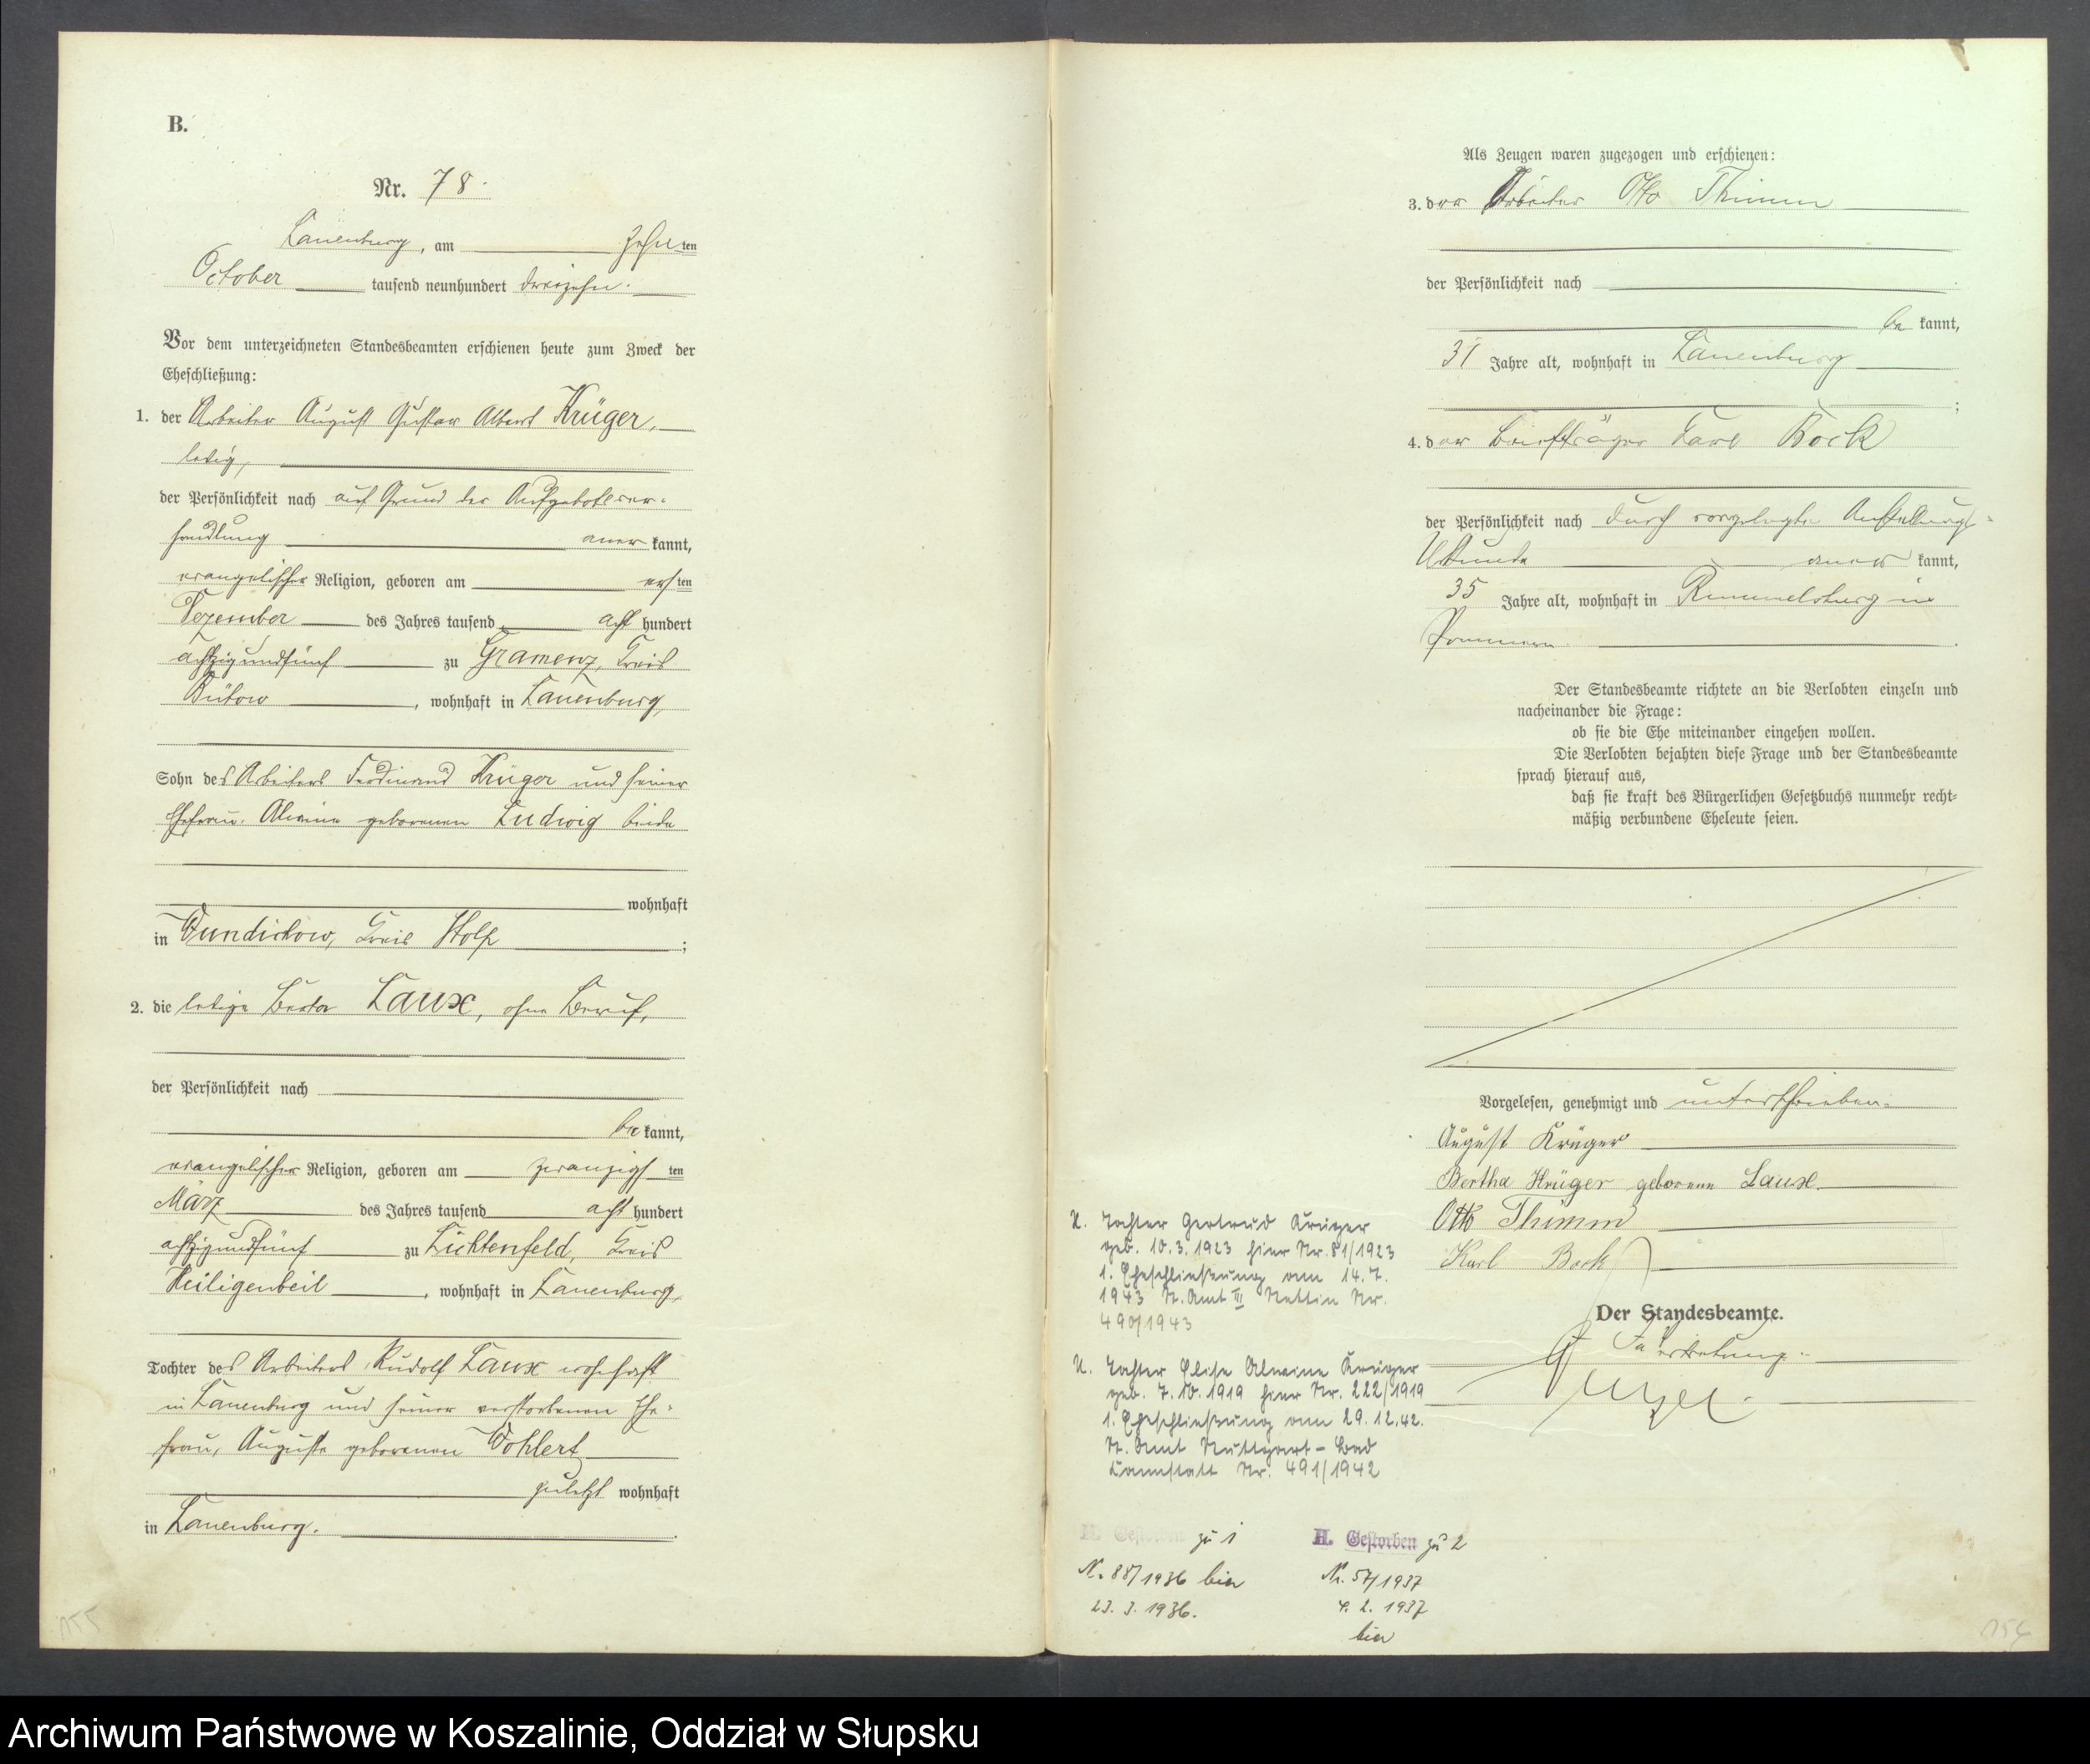 B.
Nr. 78.
Lauenburg, am zehnten
October tausend neunhundert dreizehn.
Vor dem unterzeichneten Standesbeamten erschienen heute zum Zweck der
Eheschließung:
1. der Arbeiter August Gustav Albert Krüger,
ledig,
der Persönlichkeit nach auf Grund der Aufgebotsver-
handlung anerkannt,
evangelischer Religion, geboren am ersten
Dezember des Jahres tausend acht hundert
achtzigundfünf zu Gramenz, Kreis
Bütow, wohnhaft in Lauenburg,
Sohn des Arbeiters Ferdinand Krüger und seiner
Ehefrau, Alwine geborenen Ludwig beide
wohnhaft
in Wundichow, Kreis Stolp;
2. die ledige Berta Laux, ohne Beruf,
der Persönlichkeit nach
bekannt,
evangelischer Religion, geboren am zwanzigsten
März des Jahres tausend acht hundert
achtzigundfünf zu Lichtenfeld, Kreis
Heiligenbeil, wohnhaft in Lauenburg,
Tochter des Arbeiters Rudolf Laux wohnhaft
in Lauenburg und seiner verstorbenen Ehe-
frau, Auguste geborenen Wohlert
zuletzt wohnhaft
in Lauenburg.
155
Als Zeugen waren zugezogen und erschienen:
3. der Arbeiter Otto Thimm
der Persönlichkeit nach
bekannt,
31 Jahre alt, wohnhaft in Lauenburg
;
4. der Briefträger Karl Bock
der Persönlichkeit nach durch vorgelegte Anstellungs-
Urkunde anerkannt,
35 Jahre alt, wohnhaft in Rummelsburg in
Pommern.
Der Standesbeamte richtete an die Verlobten einzeln und
nacheinander die Frage:
ob sie die Ehe miteinander eingehen wollen.
Die Verlobten bejahten diese Frage und der Standesbeamte
sprach hierauf aus,
daß sie kraft des Bürgerlichen Gesetzbuchs nunmehr recht-
mäßig verbundene Eheleute seien.
Vorgelesen, genehmigt und unterschrieben.
August Krüger
Bertha Krüger geborene Laux.
Otto Thimm
Karl Bock
Der Standesbeamte.
In Vertretung.
K. Tochter Gertrud Krüger
geb. 10.3.1923 hier Nr. 81/1923
1. Eheschließung am 14.7.
1943 St. Amt III Stettin Nr.
490/1943
K. Tochter Elise Alwine Krüger
geb. 7.10.1919 hier Nr. 222/1919
1. Eheschließung am 29.12.42.
St. Amt Stuttgart-Bad
Cannstatt Nr. 491/1942
H. Gestorben zu 1
N. 88/1936 hier
23. 3. 1936.
H. Gestorben zu 2
Nr. 57/1937
4. 2. 1937
hier
Archiwum Państwowe w Koszalinie, Oddział w Słupsku